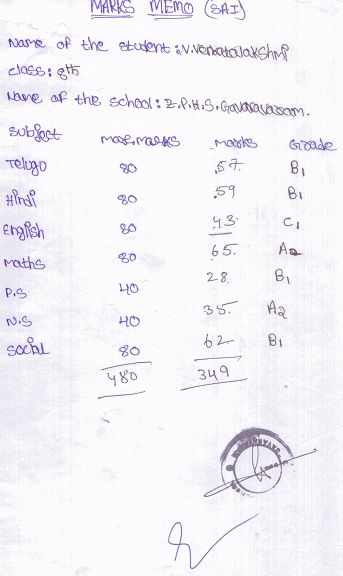 MARKS MEMO (SAI)
Name of the student : V.Venkatalakshmi
class : 8th
Name of the school : Z.P.H.S. Gavaravaram.
Subject max.marks marks Grade
Telugu 80 57. B1
Hindi 80 59 B1
English 80 43. C1
maths 80 65. A2
P.S 40 28. B1
N.S 40 35. A2
social 80 62 B1
480 349